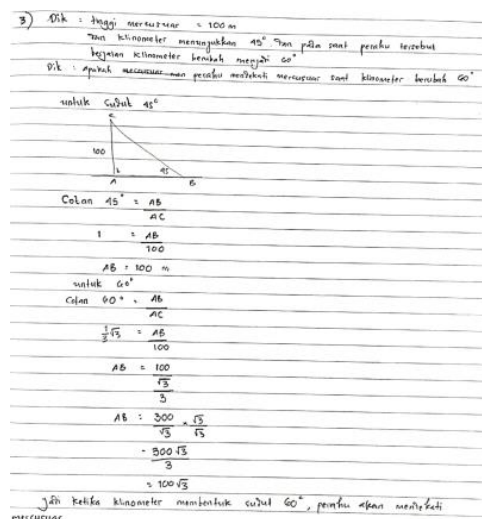 3) Dik : tinggi mercusuar = 100 m
klinometer menunjukkan 45°. Dan pada saat perahu tersebut
berjalan klinometer berubah menjadi 60°
Dit : apakah perahu mendekati mercusuar saat klinometer berubah 60°
untuk sudut 45°
C
100
45
A B
Cotan 45° = AB / AC
1 = AB / 100
AB = 100 m
untuk 60°
Cotan 60° = AB / AC
1/3 √3 = AB / 100
AB = 100 / (√3 / 3)
AB = 300 / √3 × √3 / √3
= 300 √3 / 3
= 100 √3
jadi ketika klinometer membentuk sudut 60°, perahu akan mendekati
mercusuar